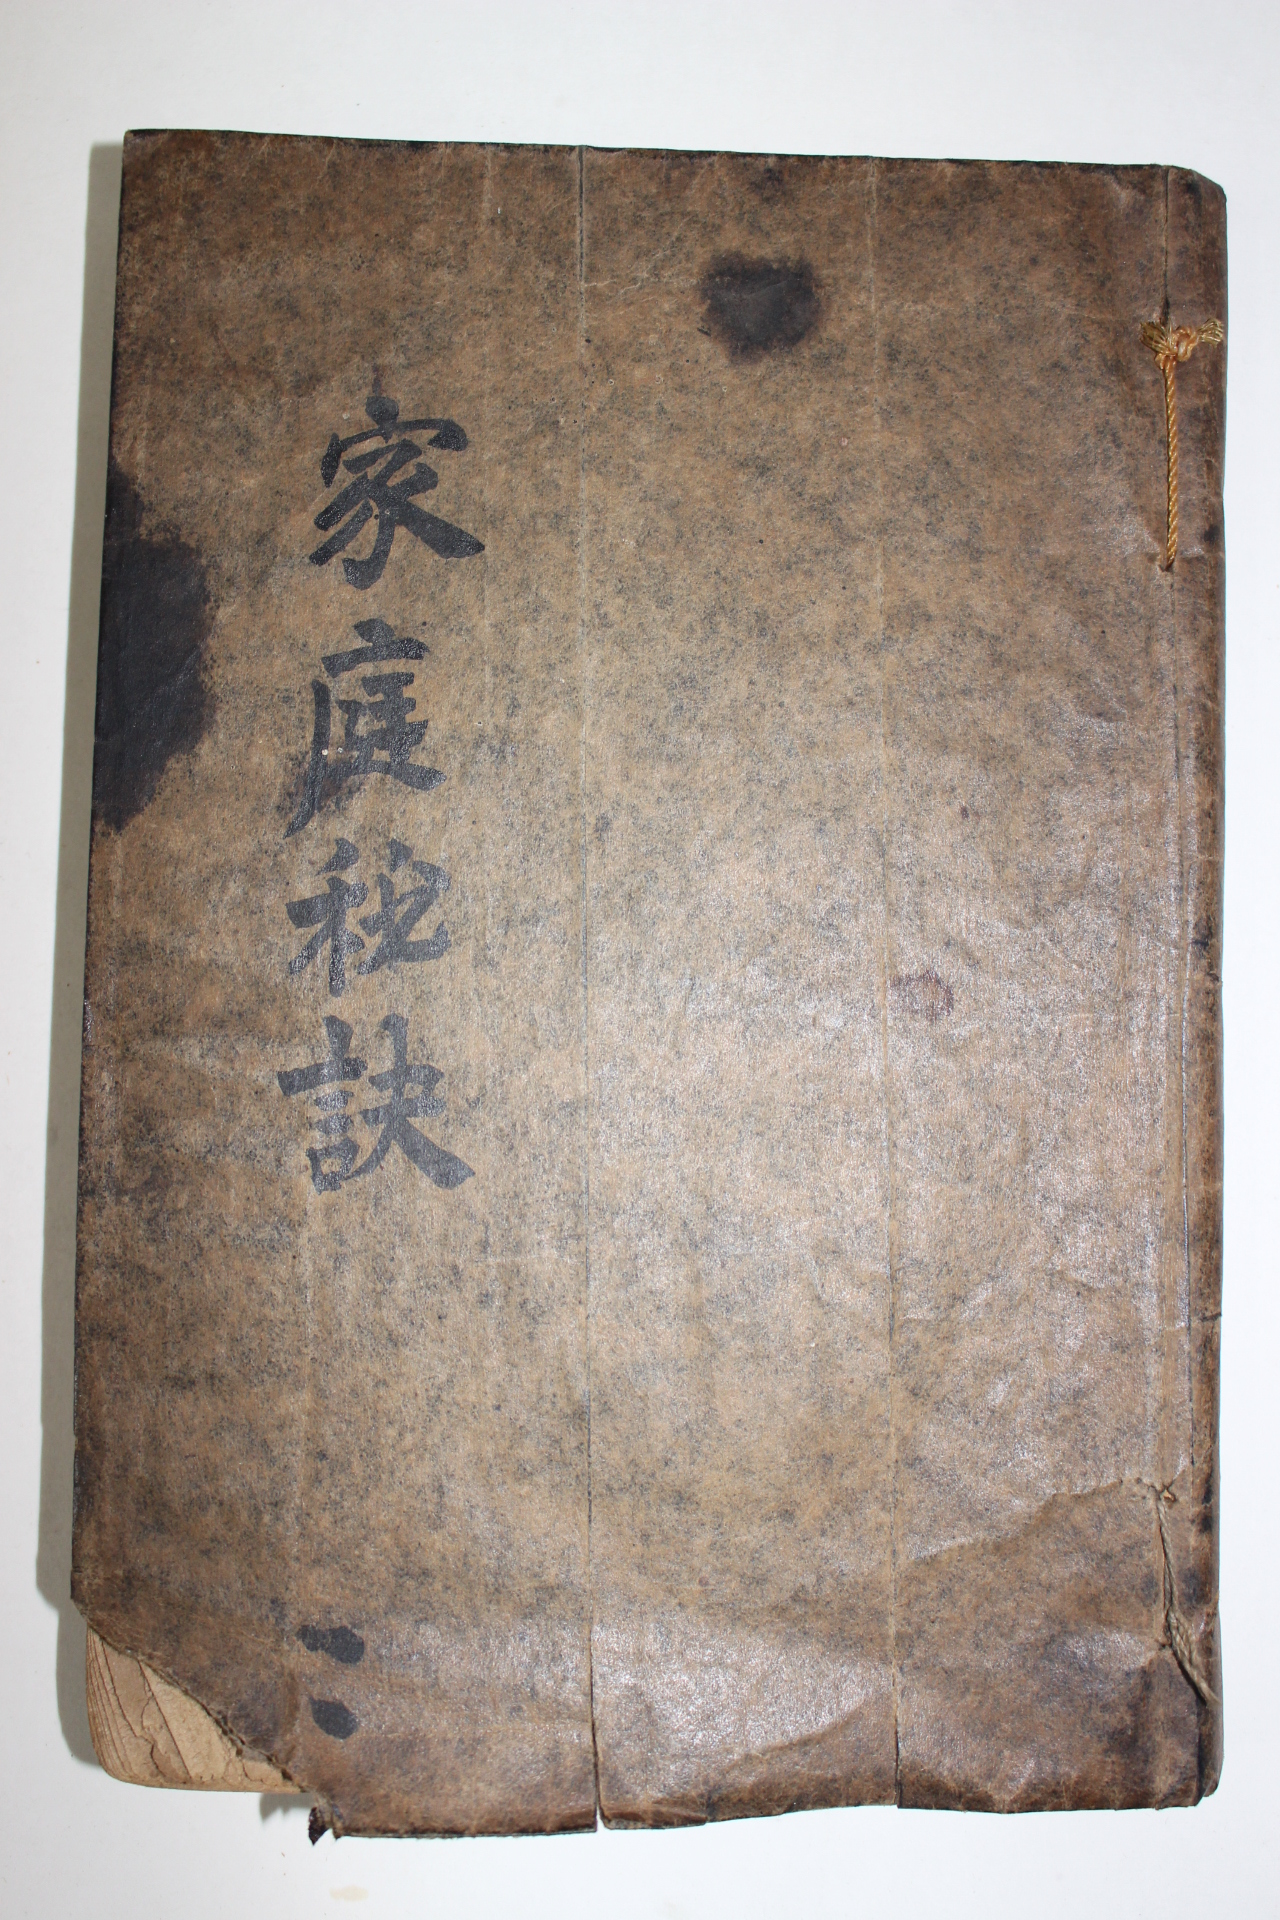 家庭秘訣